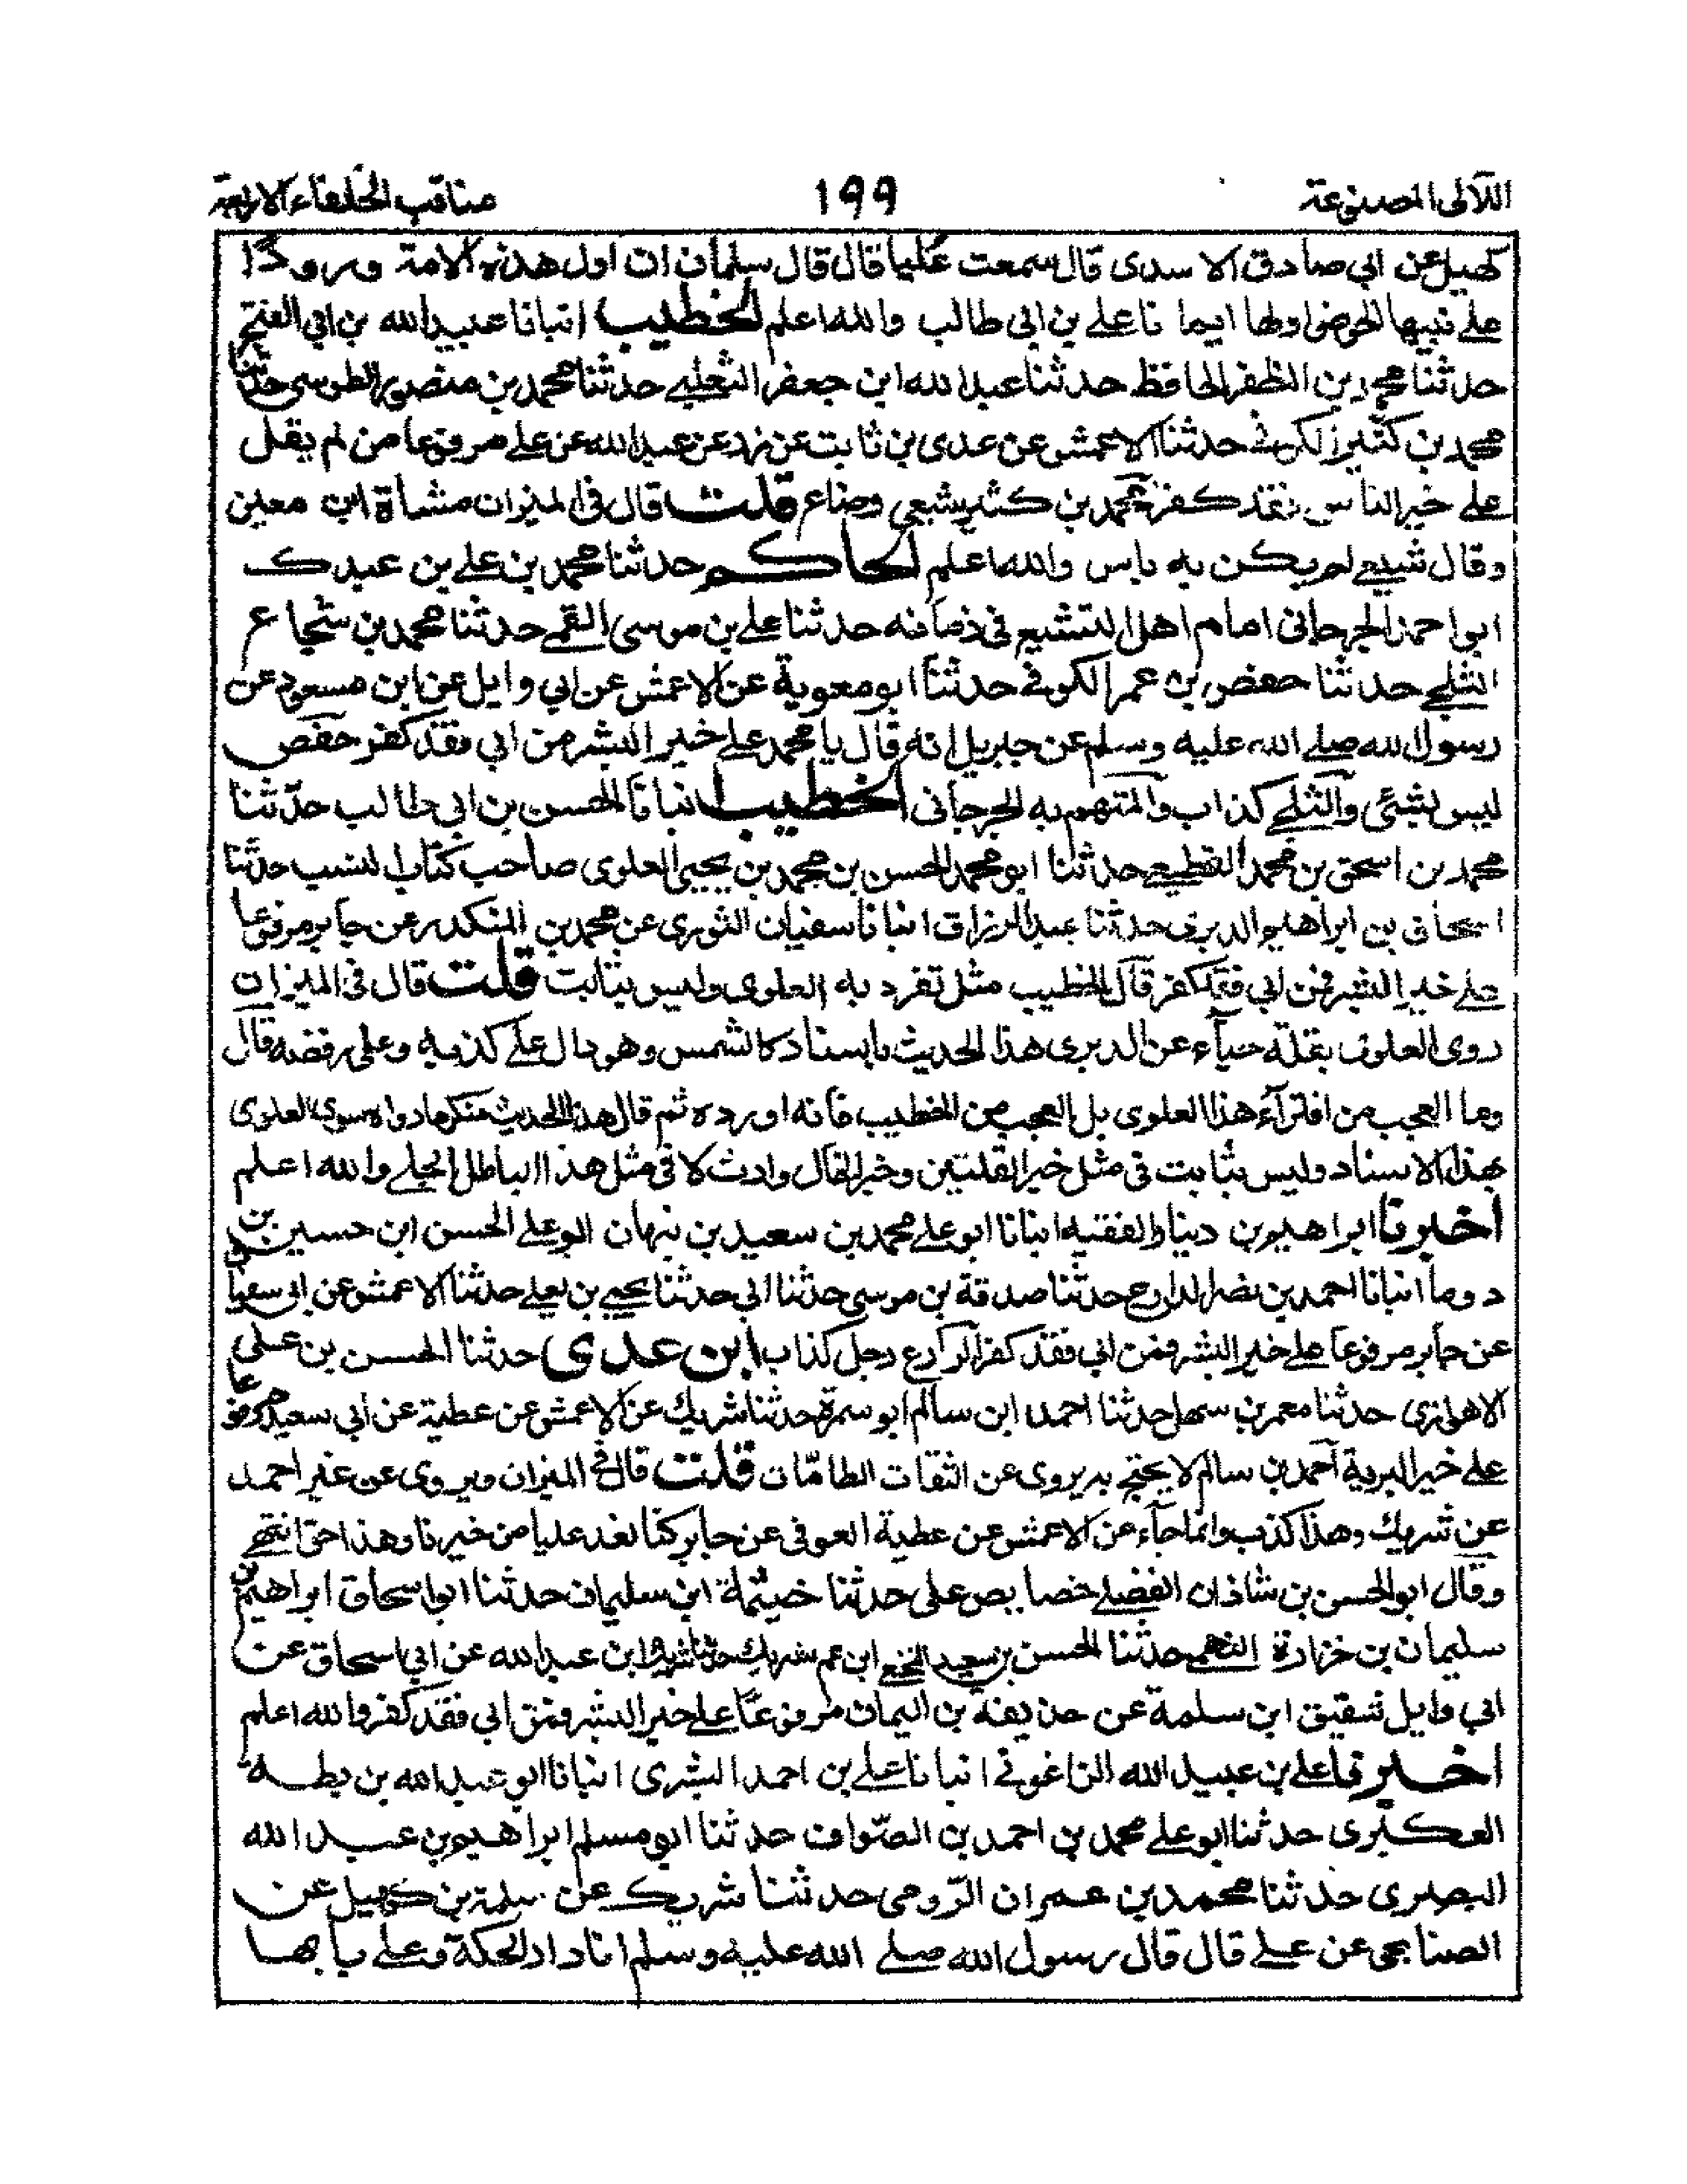 اللآلى المصنوعة ١٩٩ مناقب الخلفاء الاربعة
كهيل عن ابي صادق الا سدى قال سمعت عليا قال قال سلمان ان اول هذه الامة ورودًا
على نبيها الحوض اولها ايما نا على بن ابى طالب والله اعلم الخطيب انبانا عبيد الله بن ابى الفتح
حدثنا محمد بن المظفر الحافظ حدثنا عبد الله ابن جعفر الثعلبى حدثنا محمد بن منصور الطوسى حدثنا
محمد بن كثير الكوفى حدثنا الاعمش عن عدى بن ثابت عن زر عن عبد الله عن على مرفوعا من لم يقل
على خير الناس فقد كفر محمد بن كثير شيعى وضاع قلت قال فى الميزان مشاة ابن معين
وقال شيعى لم يكن به باس والله اعلم الحاكم حدثنا محمد بن على بن عبدك
ابو احمد الجرجانى امام اهل التشيع فى زمانه حدثنا على بن موسى القمى حدثنا محمد بن شجاع
الثلجى حدثنا حفص بن عمر الكوفى حدثنا ابو معوية عن الاعمش عن ابى وايل عن ابن مسعود عن
رسول الله صلى الله عليه وسلم عن جبريل انه قال يا محمد على خير البشر من ابى فقد كفر حفص
ليس بشئى والثلجى كذاب والمتهم به الجرجانى الخطيب انبانا الحسن بن ابى طالب حدثنا
محمد بن اسحق بن محمد القطيعى حدثنا ابو محمد الحسن بن محمد بن يحيى العلوى صاحب كتاب النسب حدثنا
اسحاق بن ابراهيم الدبرى حدثنا عبد الرزاق انبانا سفيان الثورى عن محمد بن المنكدر عن جابر مرفوعا
على خير البشر فمن ابى فقد كفر قال الخطيب مثل تفرد به العلوى وليس بثابت قلت قال فى الميزان
روى العلوى بقلة حياء عن الدبرى هذا الحديث باسناد كالشمس وهو دال على كذبه وعلى رفضه قال
وما العجب من افتراء هذا العلوى بل العجب من الخطيب فانه اورده ثم قال هذا الحديث منكر ما رواه سوى العلوى
بهذا الاسناد وليس بثابت فى مثل خبر القلتين وخبر الخال وارث لا فى مثل هذا الباطل الجلى والله اعلم
اخبرنا ابراهيم بن دينار الفقيه انبانا ابو على محمد بن سعيد بن نبهان ابو على الحسن ابن حسين بن
دوما انبانا احمد بن نصر الذارع حدثنا صدقة بن موسى حدثنا ابى حدثنا يحيى بن يعلى حدثنا الاعمش عن ابى سفيان
عن جابر مرفوعا على خير البشر فمن ابى فقد كفر الذارع دجل كذاب ابن عدى حدثنا الحسن بن على
الاهوازى حدثنا معمر بن سهل حدثنا احمد ابن سالم ابو سمرة حدثنا شريك عن الاعمش عن عطية عن ابى سعيد مرفوعا
على خير البرية احمد بن سالم لا يحتج به يروى عن الثقات الطامّات قلت قال فى الميزان ويروى عن غير احمد
عن شريك وهذا كذب وانما جاء عن الاعمش عن عطية العوفى عن جابر كنا نعد عليا من خيرنا وهذا حق انتهى
وقال ابو الحسن بن شاذان الفضلى خصايص على حدثنا خيثمة ابن سليمان حدثنا ابو اسحاق ابراهيم بن
سليمان بن خزازة النهمى حدثنا الحسن بن سعيد النخعى ابن عم شريك حدثنا شريك ابن عبد الله عن ابى اسحاق عن
ابى وايل شقيق ابن سلمة عن حذيفة بن اليمان مرفوعًا على خير البشر فمن ابى فقد كفر والله اعلم
اخبرنا على بن عبيد الله الزاغونى انبانا على بن احمد البشرى انبانا ابو عبد الله بن بطة
العكبرى حدثنا ابو على محمد بن احمد بن الصّواف حدثنا ابو مسلم ابراهيم بن عبد الله
البصرى حدثنا محمد بن عمران الرّومى حدثنا شريك عن سلمة بن كهيل عن
الصنابجى عن على قال قال رسول الله صلى الله عليه وسلم انا دار الحكمة وعلى بابها